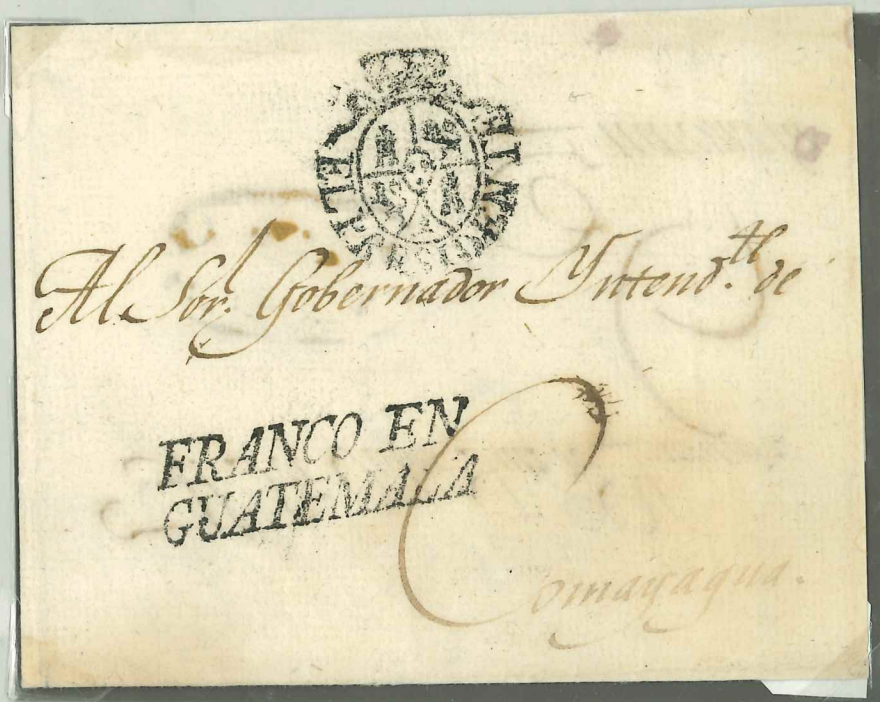 Al Sor. Gobernador Yntend.te de
FRANCO EN
GUATEMALA
Comayagua.